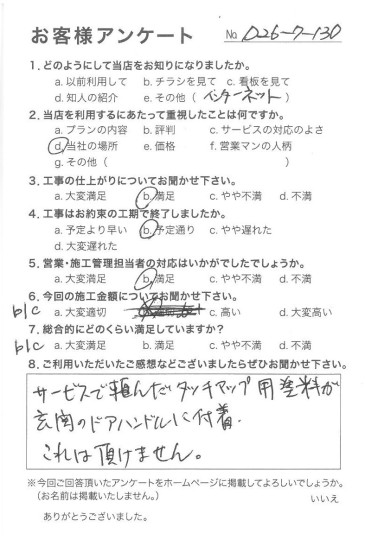 お客様アンケート No D26-7-130
1. どのようにして当店をお知りになりましたか。
a. 以前利用して b. チラシを見て c. 看板を見て
d. 知人の紹介 e. その他( インターネット )
2. 当店を利用するにあたって重視したことは何ですか。
a. プランの内容 b. 評判 c. サービスの対応のよさ
d. 当社の場所 e. 価格 f. 営業マンの人柄
g. その他( )
3. 工事の仕上がりについてお聞かせ下さい。
a. 大変満足 b. 満足 c. やや不満 d. 不満
4. 工事はお約束の工期で終了しましたか。
a. 予定より早い b. 予定通り c. やや遅れた
d. 大変遅れた
5. 営業・施工管理担当者の対応はいかがでしたでしょうか。
a. 大変満足 b. 満足 c. やや不満 d. 不満
6. 今回の施工金額についてお聞かせ下さい。
b/c a. 大変適切 c. 高い d. 大変高い
7. 総合的にどのくらい満足していますか?
b/c a. 大変満足 b. 満足 c. やや不満 d. 不満
8. ご利用いただいたご感想などございましたらぜひお聞かせ下さい。
サービスで頼んだタッチアップ用塗料が
玄関のドアハンドルに付着.
これは頂けません。
※今回ご回答頂いたアンケートをホームページに掲載してよろしいでしょうか。
(お名前は掲載いたしません。) いいえ
ありがとうございました。